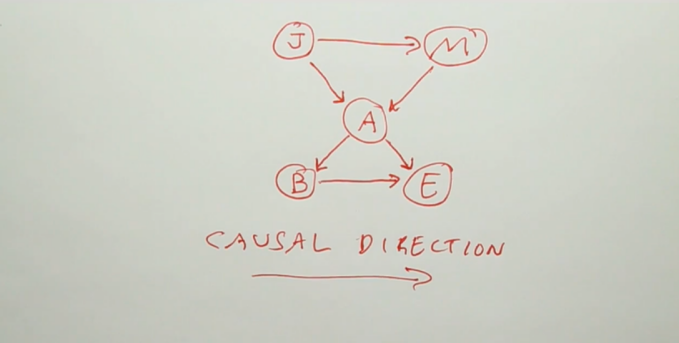 J M
A
B E
CAUSAL DIRECTION